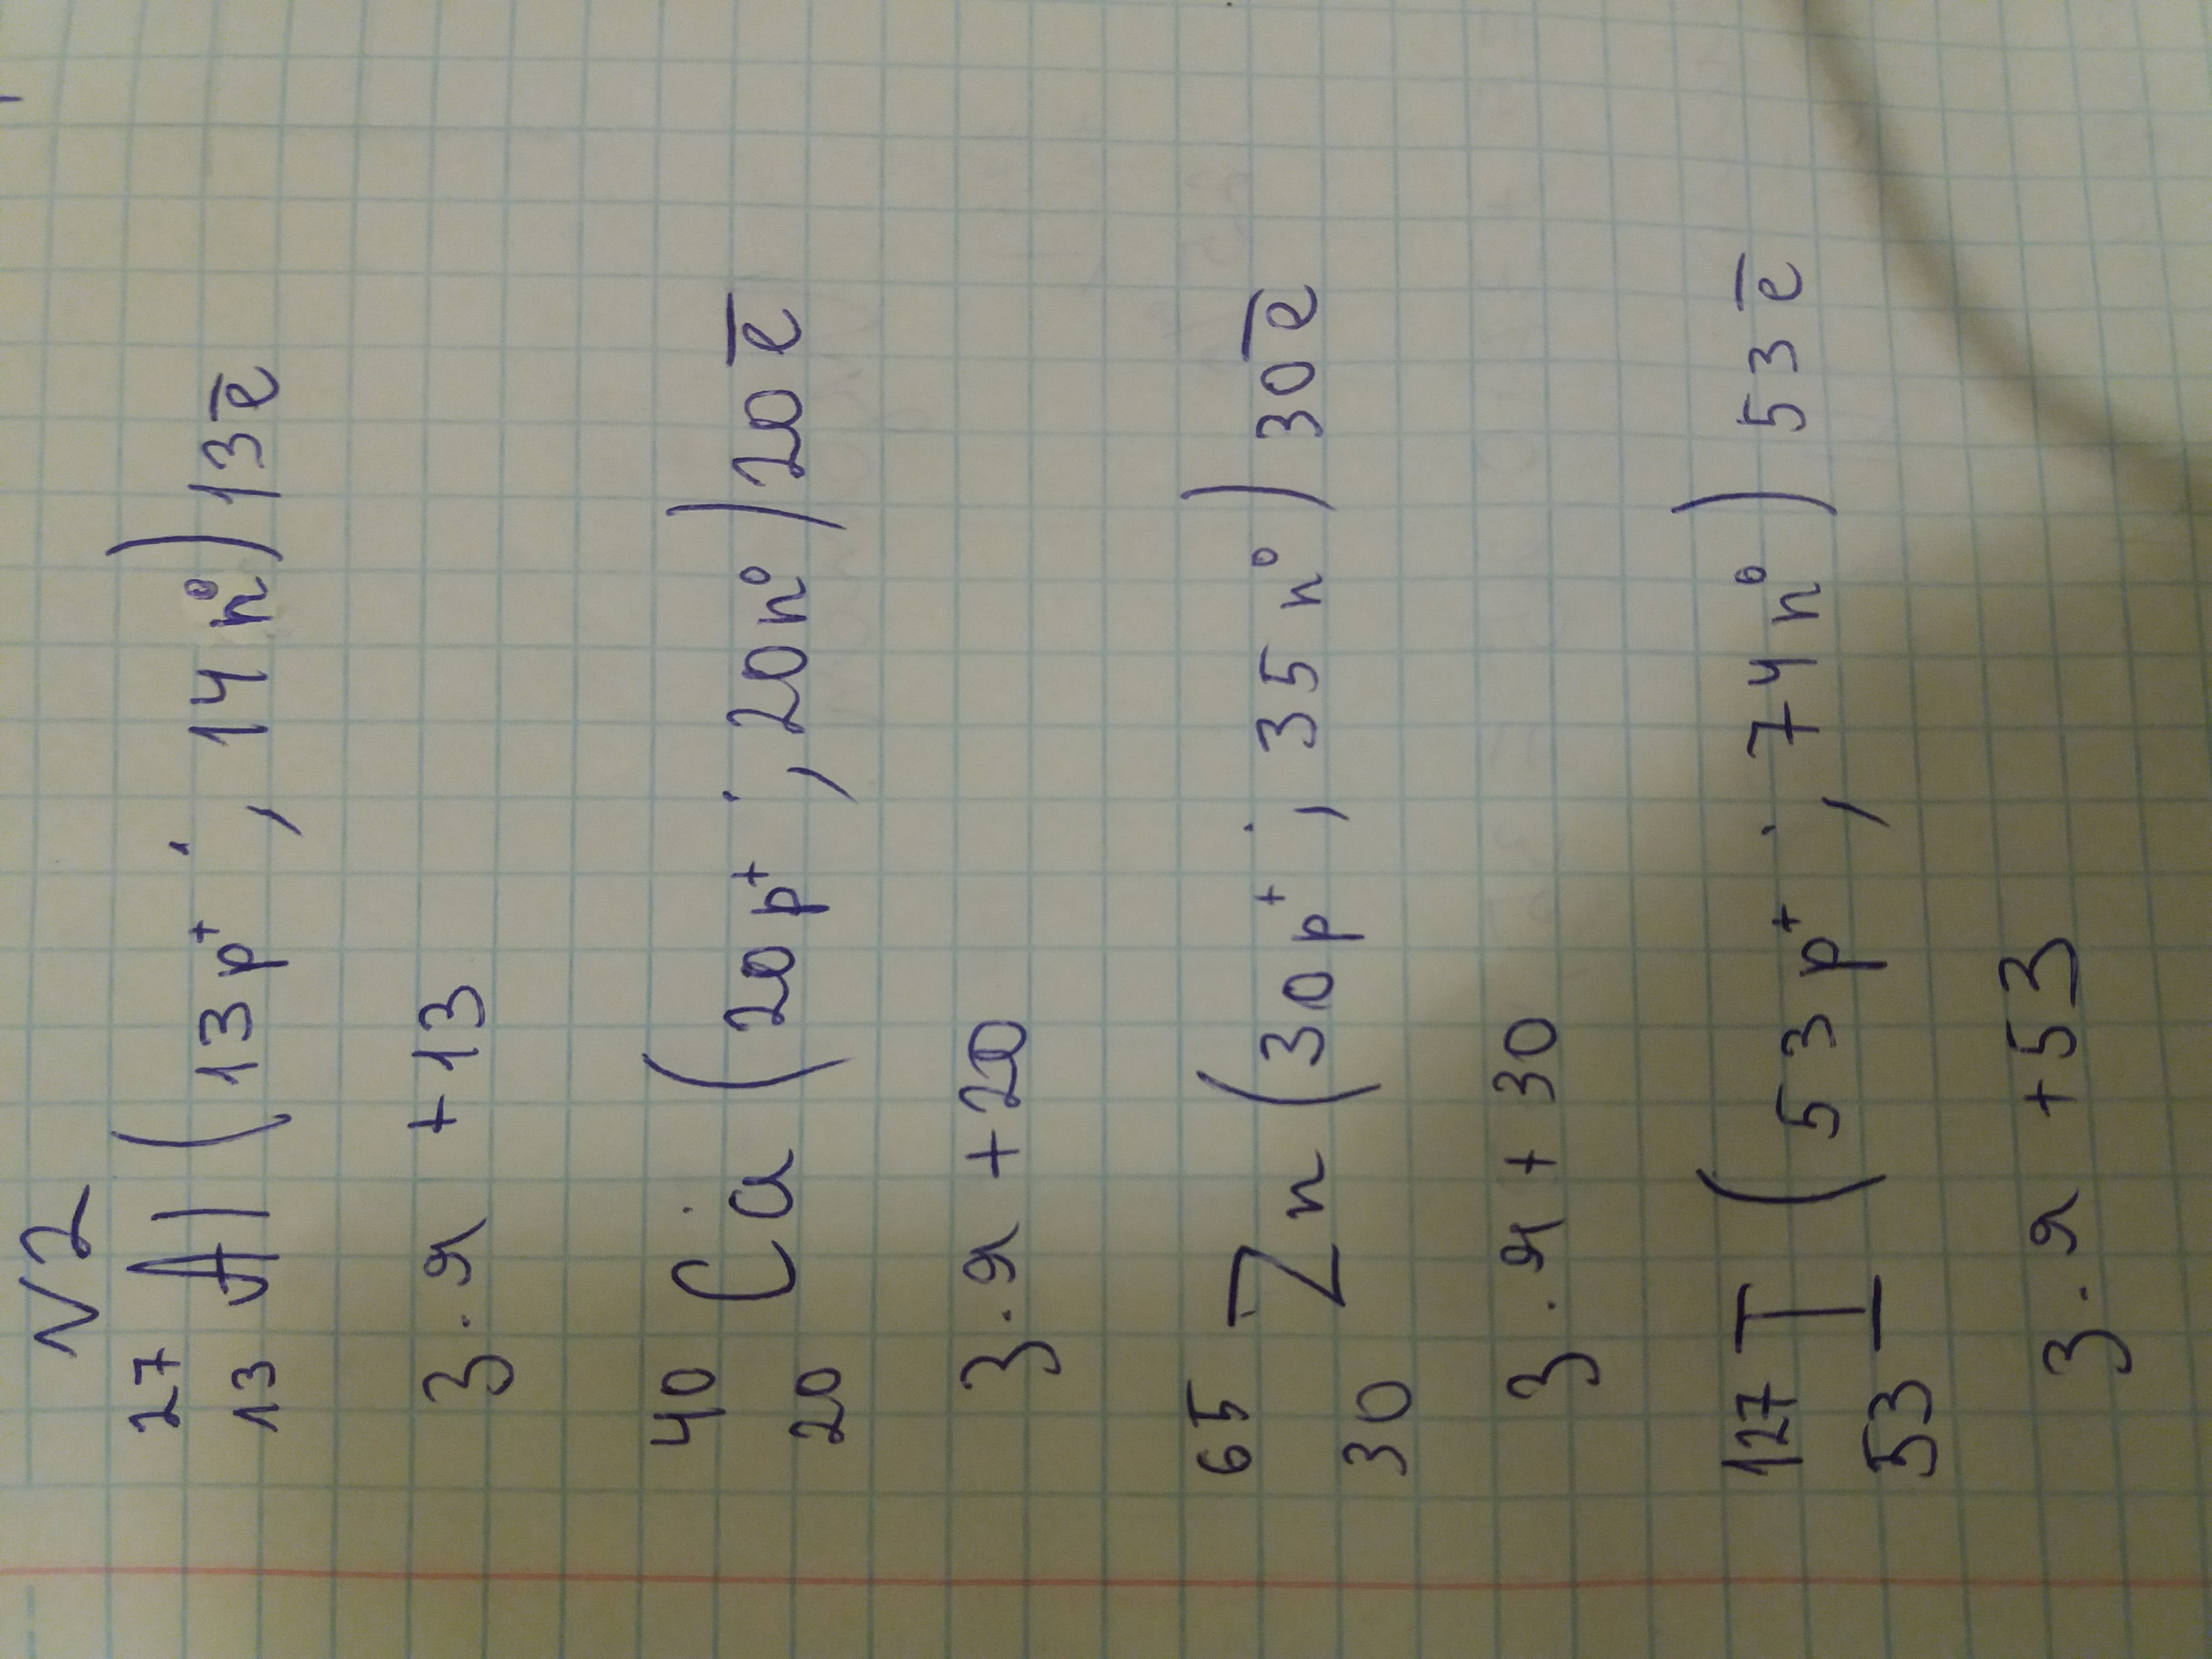 N2
²⁷₁₃Al (13p⁺, 14n⁰) 13e̅
З.я +13
⁴⁰₂₀Ca (20p⁺, 20n⁰) 20e̅
З.я +20
⁶⁵₃₀Zn (30p⁺, 35n⁰) 30e̅
З.я + 30
¹²⁷₅₃I (53p⁺, 74n⁰) 53e̅
З.я +53